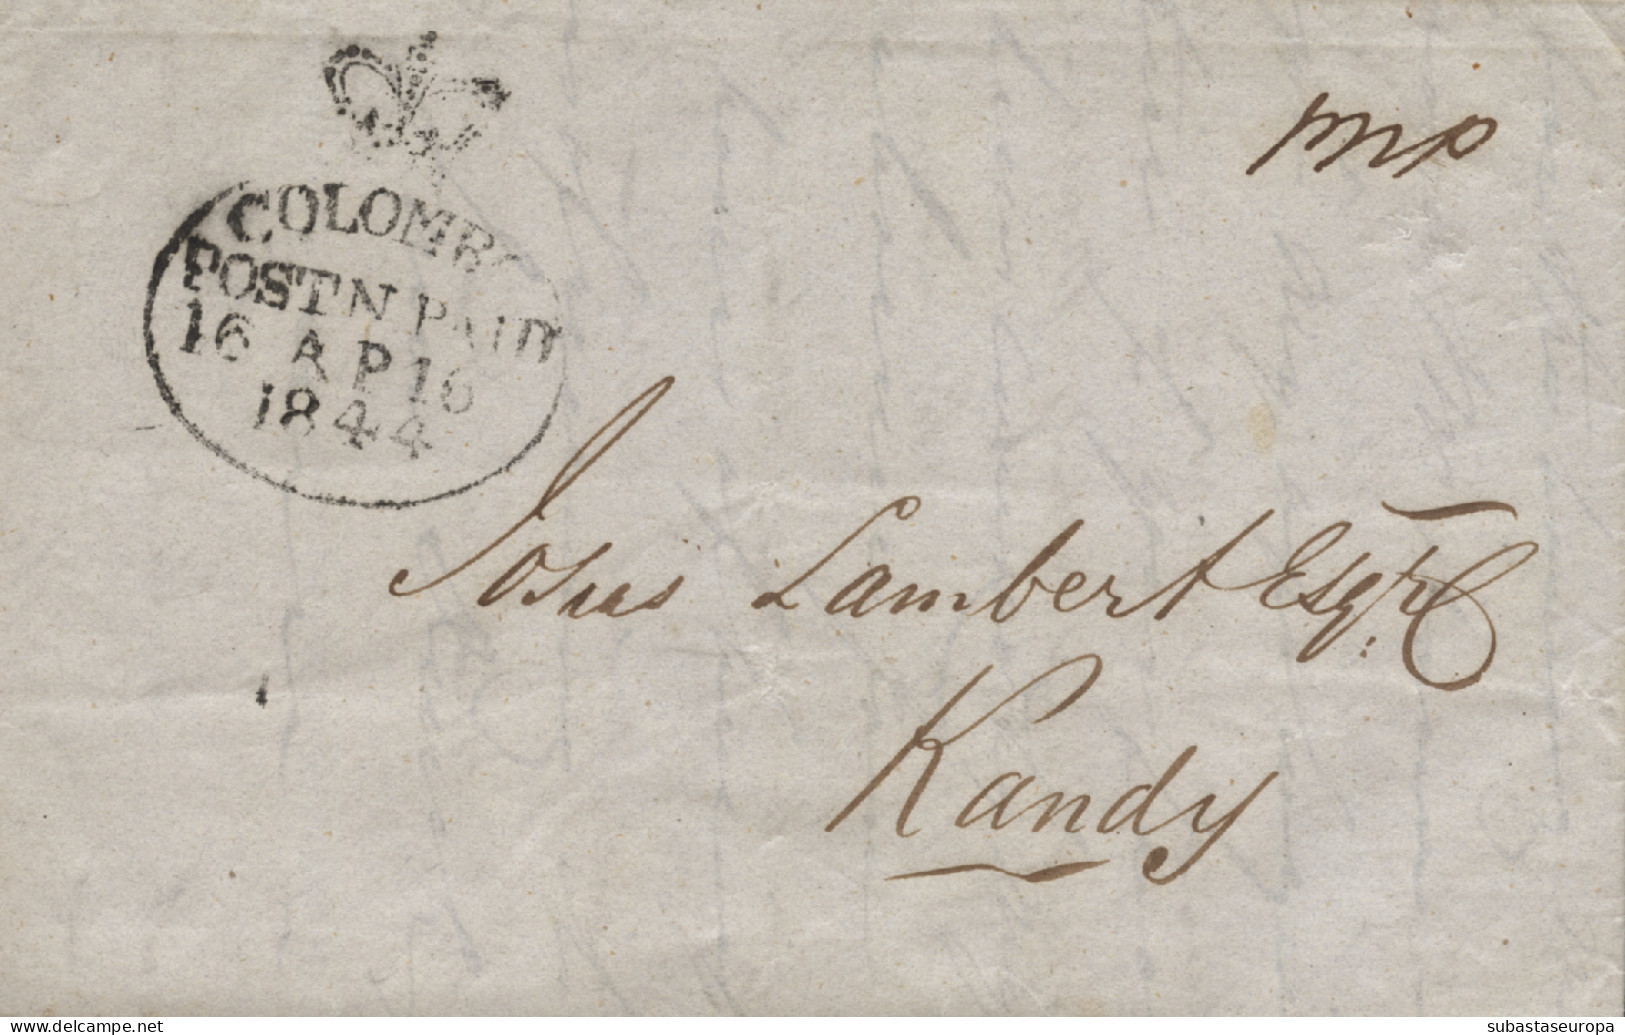 COLOMBO
POSTN PAID
16 AP 16
1844
Josias Lambert Esqre
Kandy
www.delcampe.net
subastaseuropa